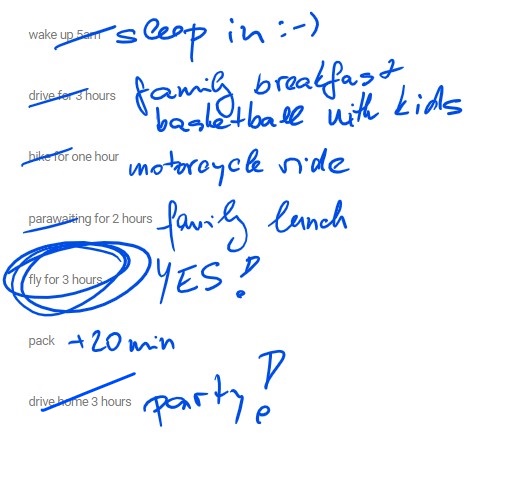 wake up 5am sleep in :-)
drive for 3 hours family breakfast
basketball with kids
hike for one hour motorcycle ride
parawaiting for 2 hours family lunch
fly for 3 hours YES!
pack +20 min
drive home 3 hours party!